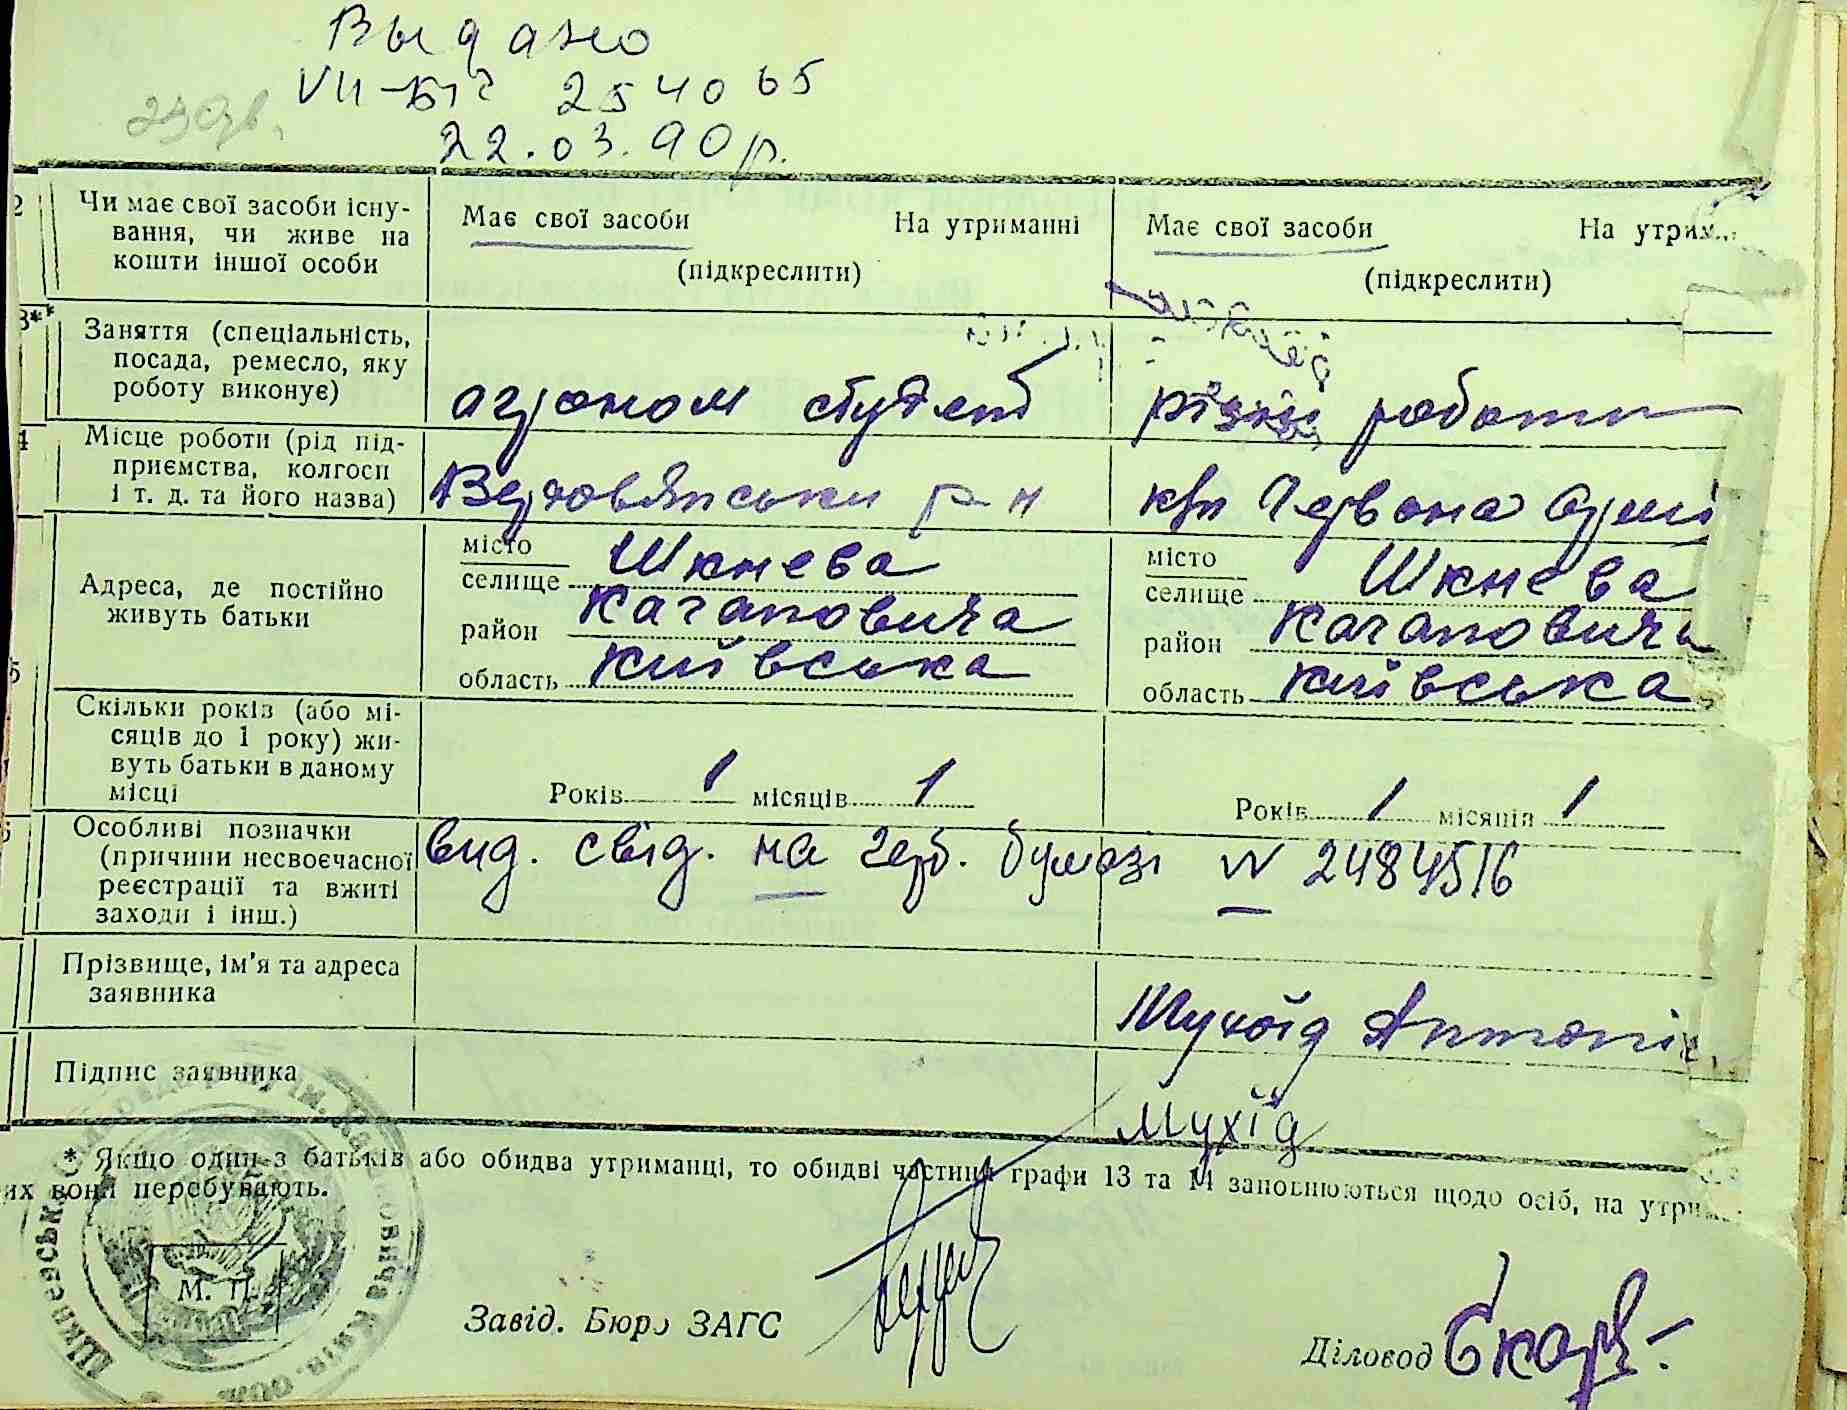 Выдано
VII-БК 254065
22.03.90р.
2 Чи має свої засоби існу-
вання, чи живе на
кошти іншої особи
Має свої засоби На утриманні
(підкреслити)
Має свої засоби На утрим
(підкреслити)
3** Заняття (спеціальність,
посада, ремесло, яку
роботу виконує)
агроном студент
різні роботи
4 Місце роботи (рід під-
приємства, колгосп
і т. д. та його назва)
р-н
Червона Армі
5 Адреса, де постійно
живуть батьки
місто
селище Шкнева
район Кагановича
область Київська
місто
селище Шкнева
район Кагановича
область Київська
Скільки років (або мі-
сяців до 1 року) жи-
вуть батьки в даному
місці
Років 1 місяців 1
Років 1 місяців 1
6 Особливі позначки
(причини несвоєчасної
реєстрації та вжиті
заходи і інш.)
вид. свід. на герб. бумазі N 2484516
Прізвище, ім'я та адреса
заявника
Мухоїд Антоні
Підпис заявника
Мухїд
* Якщо один з батьків або обидва утриманці, то обидві частини графи 13 та 14 заповнюються щодо осіб, на утрим
их вони перебувають.
М. П.
Завід. Бюро ЗАГС
Діловод